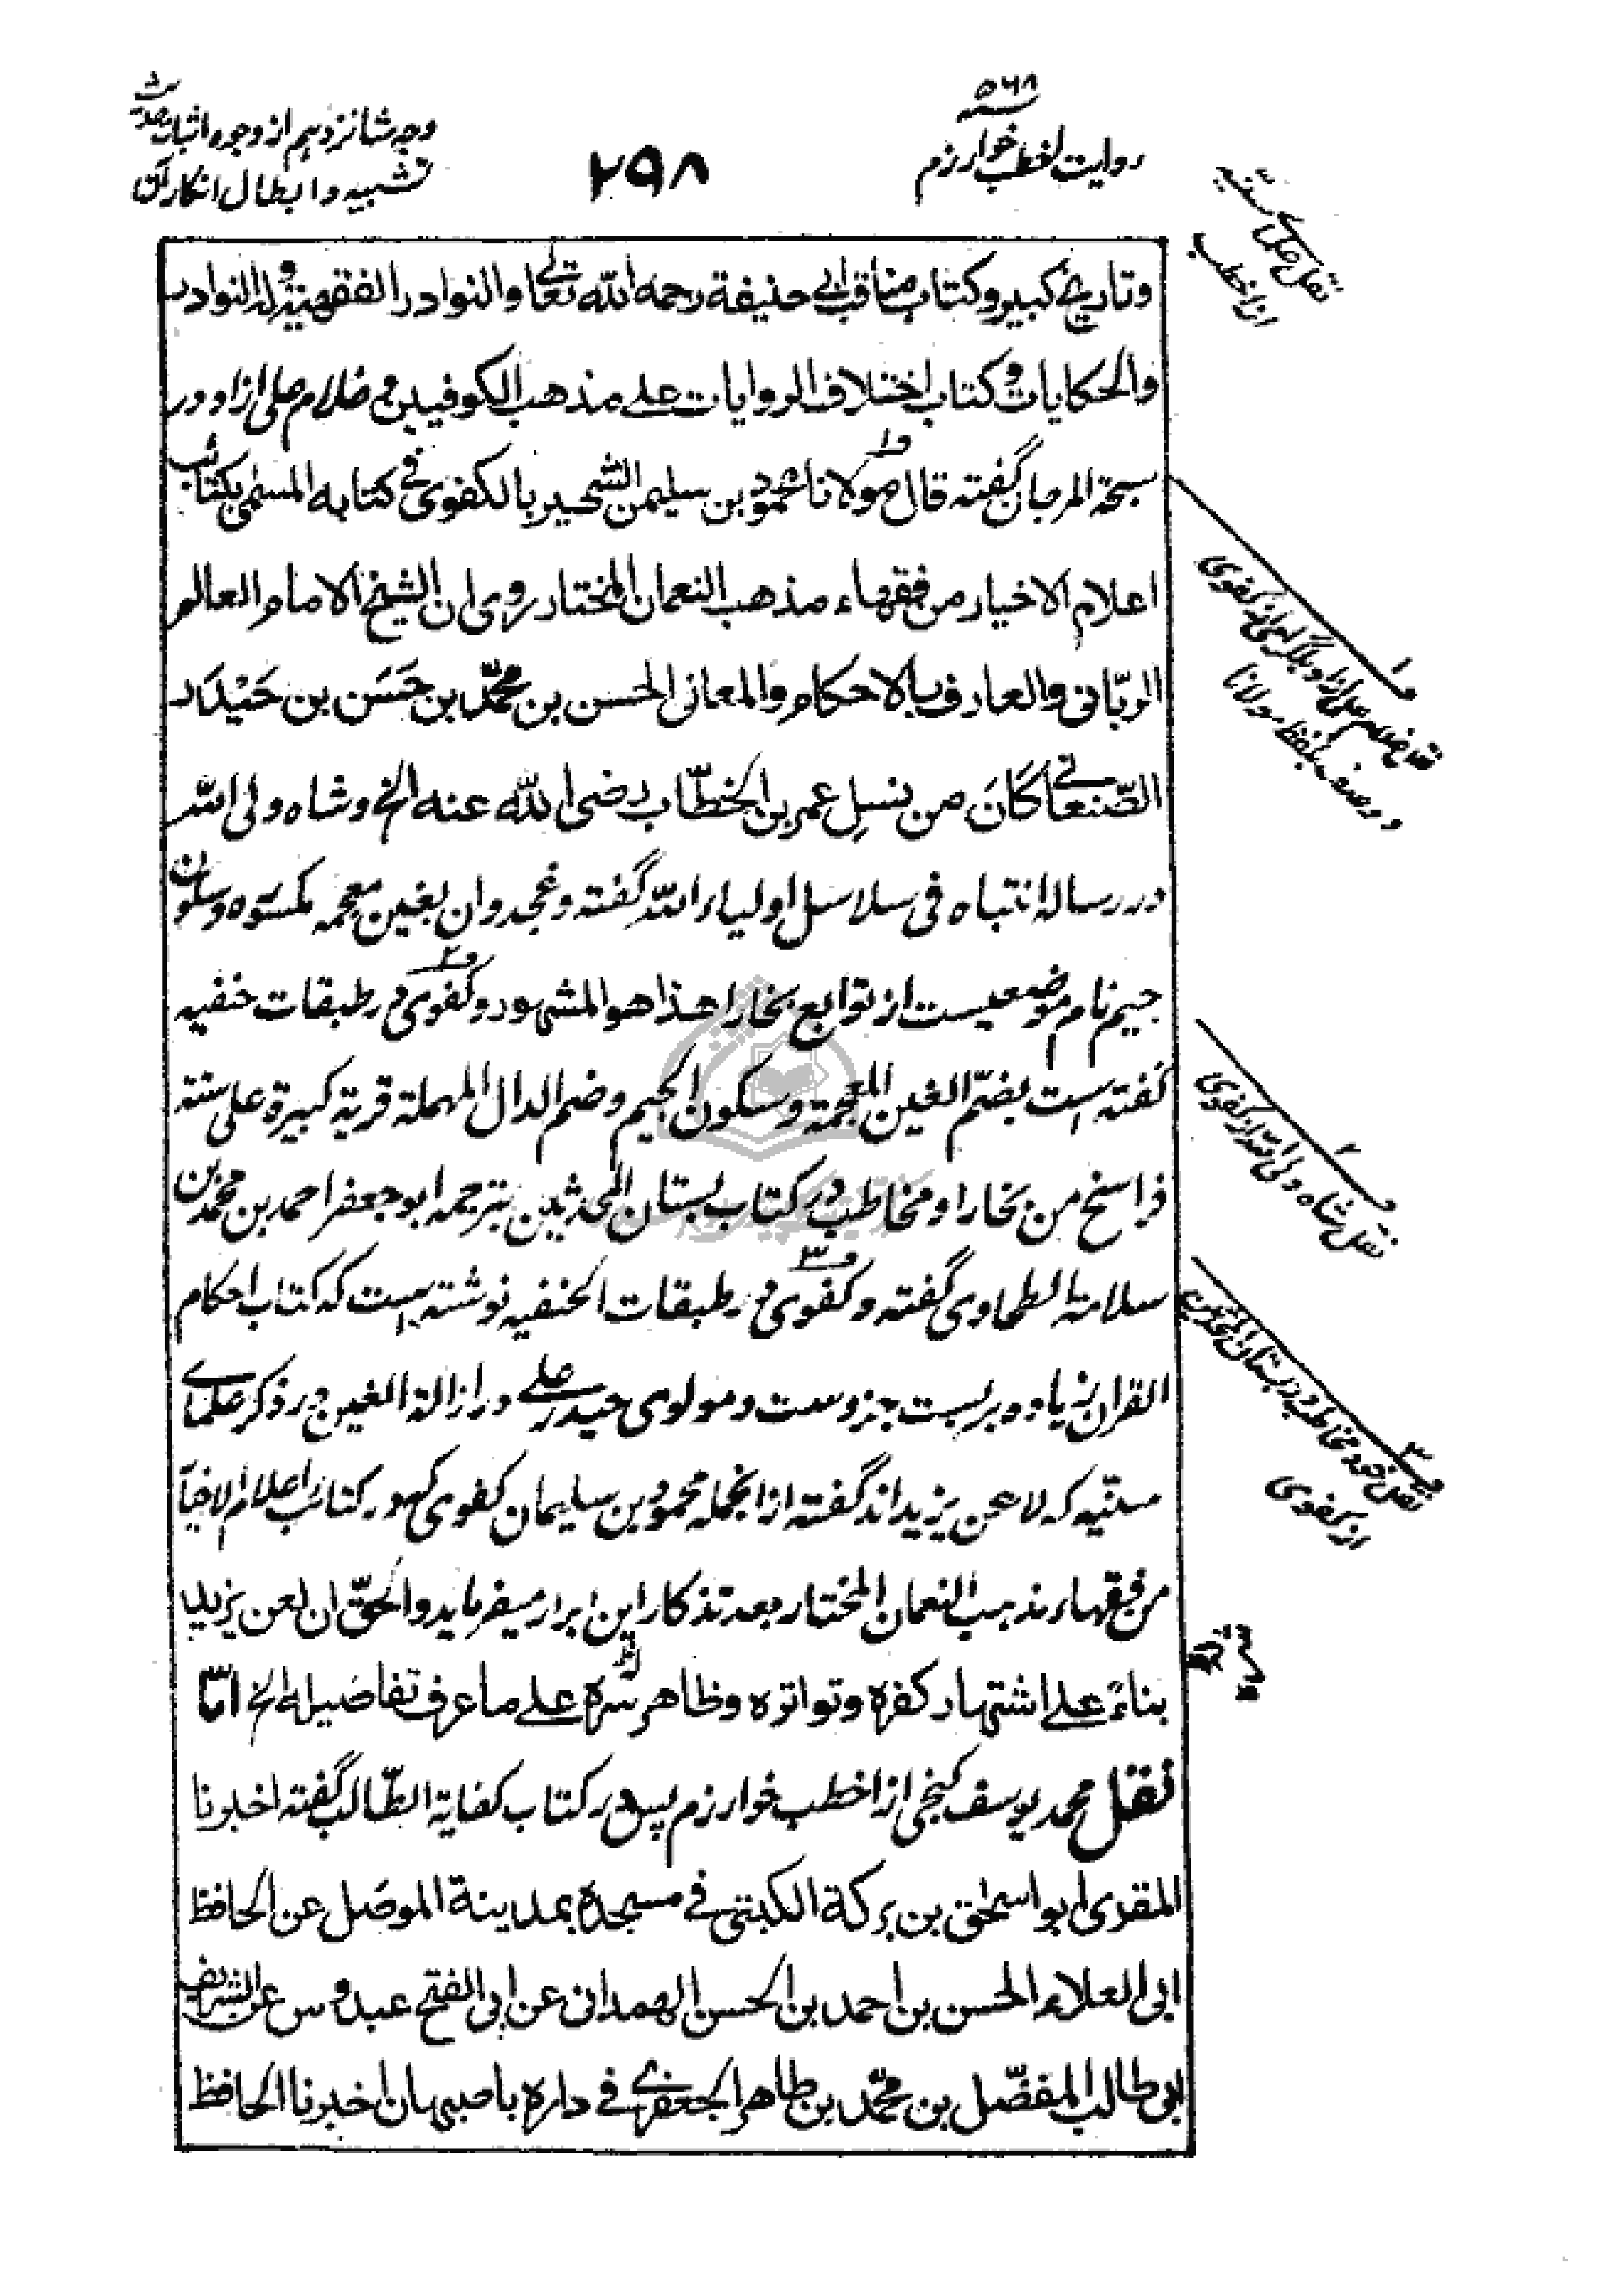 روایت اخطب خوارزم
۵۶۸
۲۹۸
وجه شانزدهم از وجوه اثبات حدیث
تشبیه و ابطال انکار آن
نقل علمای سنیه
از اخطب
وتاریخ کبیر وکتاب مناقب ابی حنیفة رحمه الله تعالی والنوادر الفقهیة والنوادر
والحکایات وکتاب اختلاف الروایات علی مذهب الکوفیین و غلام علی ازاد در
سبحة المرجان گفته قال مولانا محمود بن سلیمن الشهیر بالکفوی فی کتابه المسمی بکتائب
اعلام الاخیار من فقهاء مذهب النعمان المختار روی ان الشیخ الامام العالم
الربّانی والعارف بالاحکام والمعانی الحسن بن محمّد بن حَسَن بن حَیْدَر
الصّنعانی کَانَ من نسلِ عمر بن الخطّاب رضی الله عنه الخ و شاه ولی الله
در رساله انتباه فی سلاسل اولیاء الله گفته و غجدوان بغین معجمه مکسوره وسکون
جیم نام موضعیست از توابع بخارا هذا هو المشهور و کفوی در طبقات حنفیه
گفته است بضمّ الغین المعجمة وسکون الجیم وضم الدال المهملة قریة کبیرة علی ستة
فراسخ من بخارا و مخاطب در کتاب بستان المحدثین بترجمه ابو جعفر احمد بن محمد بن
سلامة الطحاوی گفته و کفوی در طبقات الحنفیه نوشته است که کتاب احکام
القران زیاده بر بست جزوست و مولوی حیدر علی در ازالة الغین در ذکر علمای
سنّیه که لاعن یزید اند گفته از انجمله محمود بن سلیمان کفوی که در کتائب اعلام الاخیار
من فقهاء مذهب النعمان المختار بعد تذکار این ابرار میفرماید والحقّ ان لعن یزید
بناءً علی اشتهار کفره وتواتره وظاهر شره علی ما عرف تفاصیله الخ امّا
نقل محمد یوسف کنجی از اخطب خوارزم پس در کتاب کفایة الطّالب گفته اخبرنا
المقری ابو اسحٰق بن برکة الکبتی فی مسجده بمدینة الموصل عن الحافظ
ابی العلاء الحسن بن احمد بن الحسن الهمدانی عن ابی الفتح عبدوس عن الشریف
ابی طالب المفضّل بن محمّد بن طاهر الجعفری فی داره باصبهان اخبرنا الحافظ
۱
نقل غلام علی ازاد بلگرامی از کفوی
و وصف بلفظ مولانا
۲
نقل شاه ولی الله از کفوی
۳
نقل خود مخاطب در بستان المحدثین
از کفوی